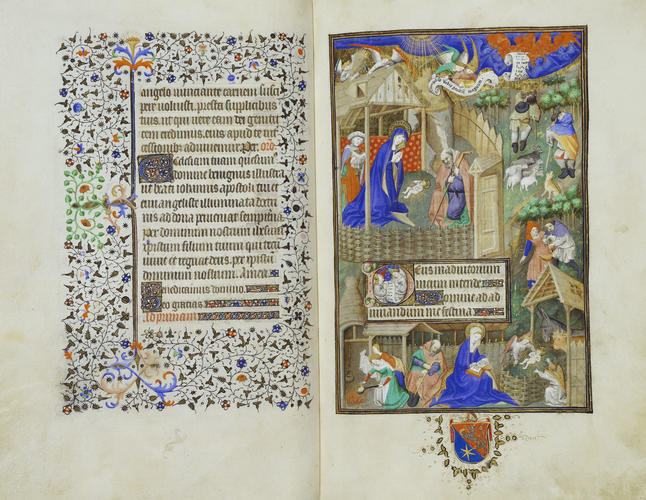 angelo nunciante carnem susci
pere voluisti. presta supplicibus
tuis. ut qui vere eam dei genitri
cem credimus. eius apud te in
tercessionibus adiuvemur. Per. oro
Ecclesiam tuam quesum
domine benignus illustra
ut beati iohannis apostoli tui et
evangeliste illuminata doctri
nis ad dona perveniat sempitna.
Per dominum nostrum ihesum
xpistum filium tuum qui tecum
vivit et regnat deus. per
dominum nostrum. Amen.
Benedicamus domino.
Deo gracias
Ad primam
Deus in adiutorium
meum intende.
Domine ad ad
iuvandum me festina